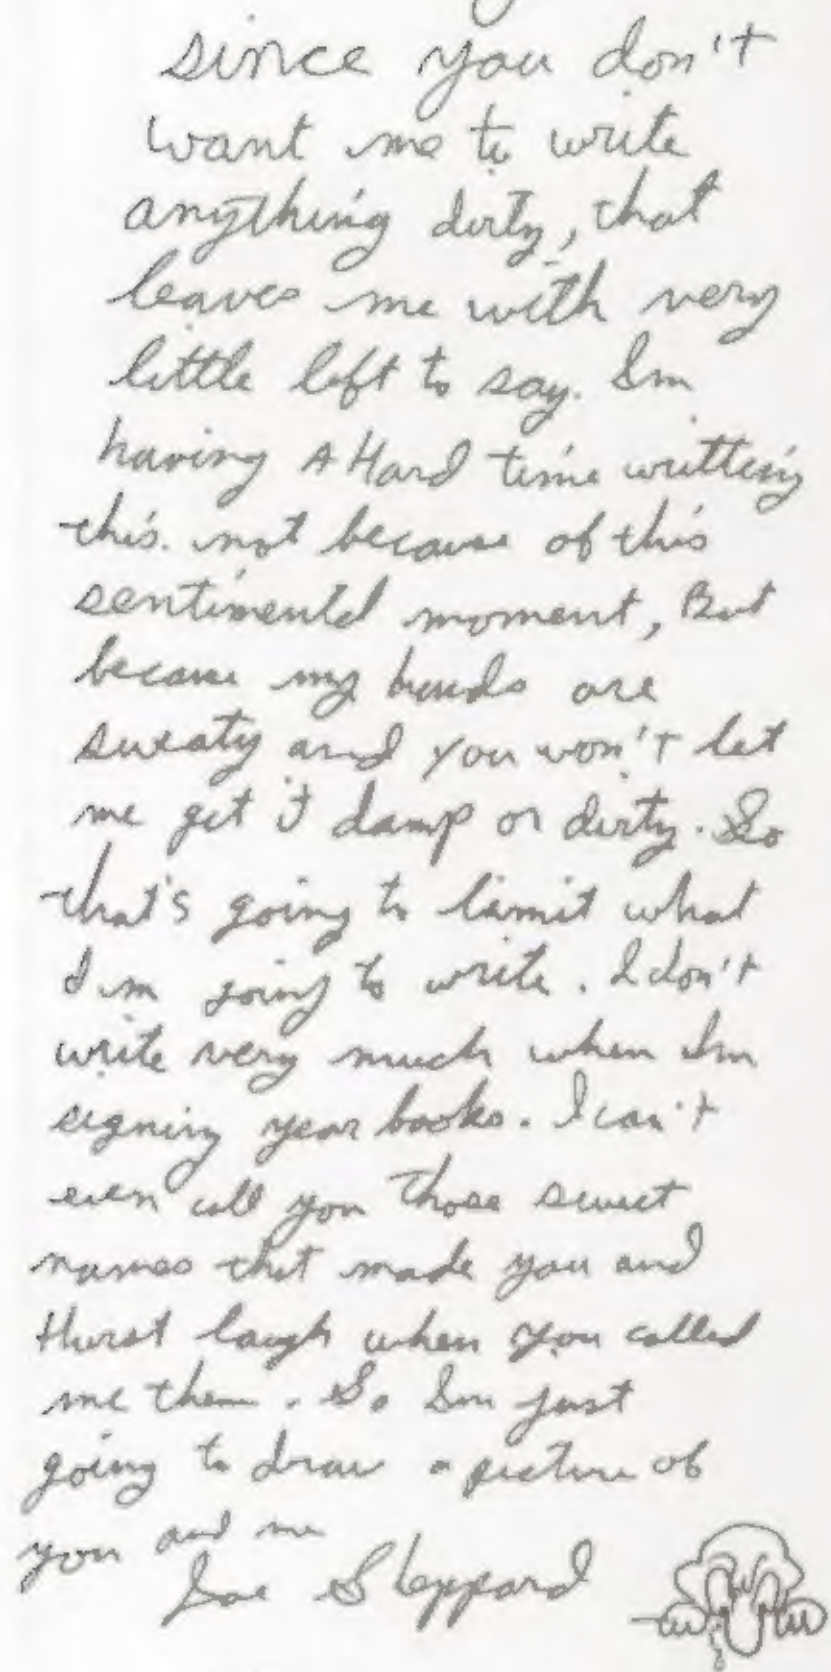 since you don't
want me to write
anything dirty, that
leaves me with very
little left to say. Im
having A Hard time writting
this. not because of this
sentimentd moment, But
because my hands are
sweaty and you won't let
me get it damp or dirty. So
that's going to limit what
I im going to write. I don't
write very much when Im
signing year books. I can't
even call you those sweet
names that made you and
Hurst laugh when you called
me them. So Im just
going to draw a picture of
you and me
Joe Sheppard